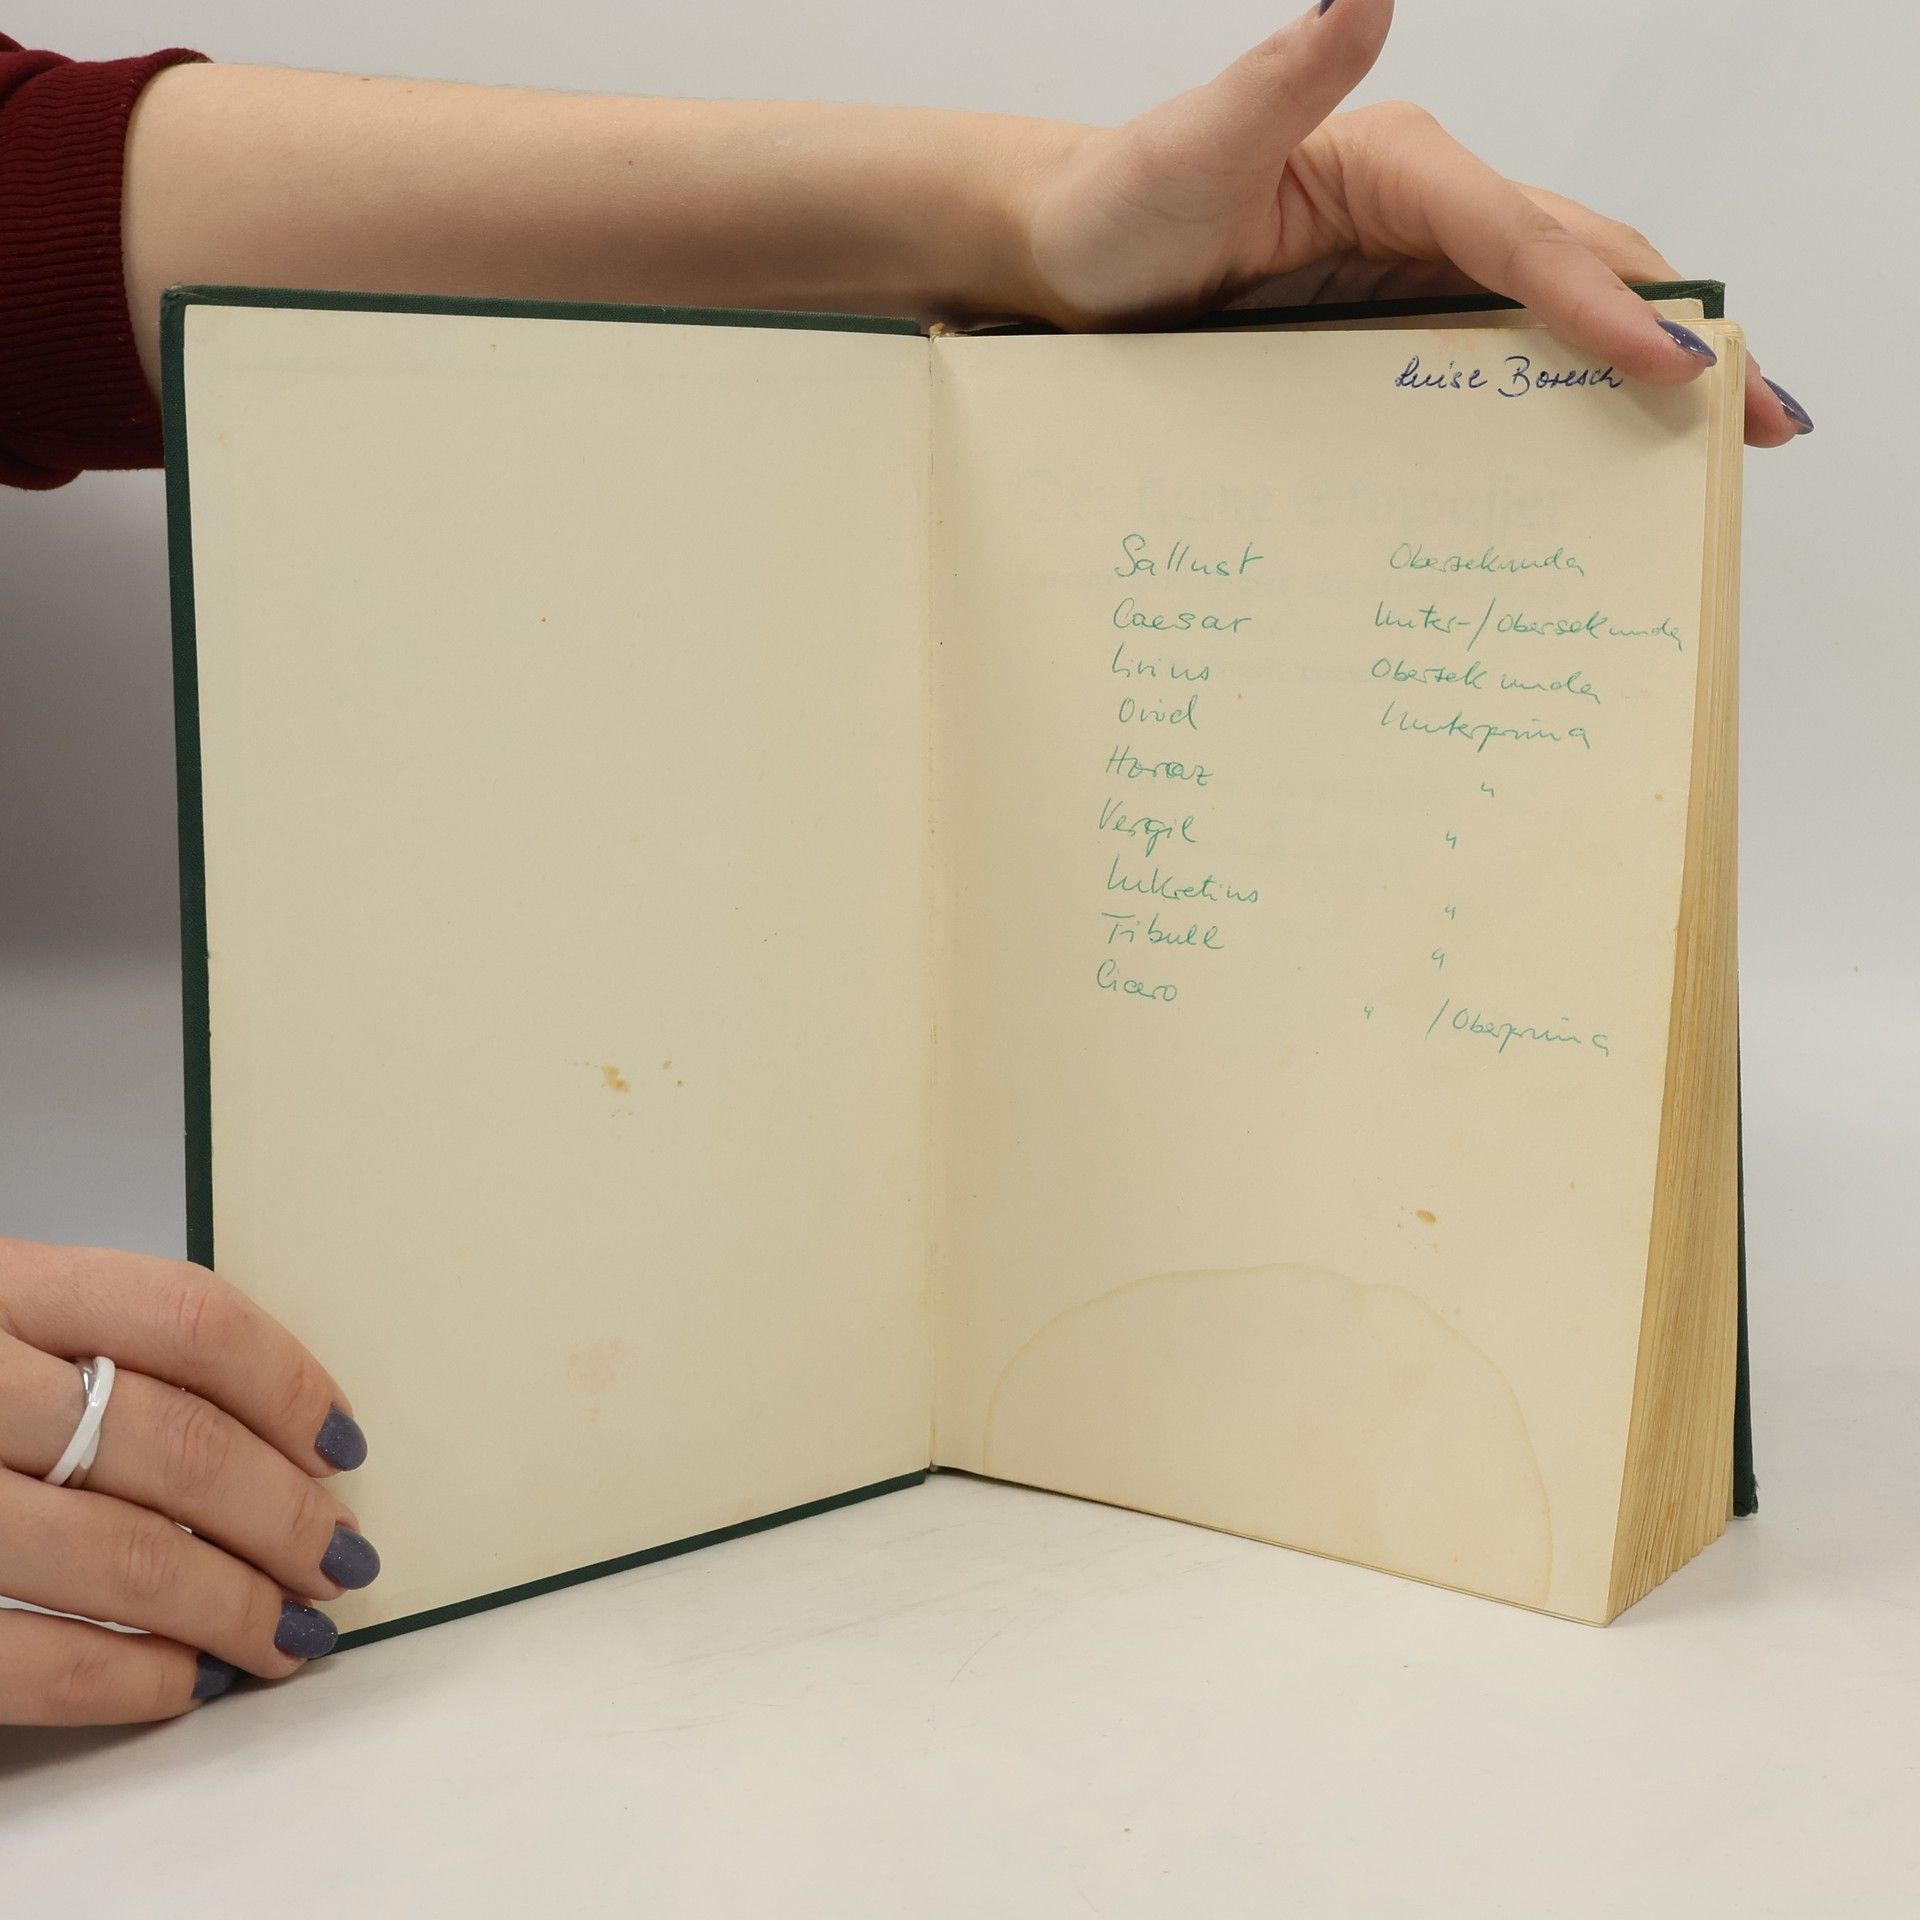 Luise Boresch
Der kleine Stowasser
Sallust Obersekunda
Caesar Unter-/Obersekunda
Livius Obersekunda
Ovid Unterprima
Horaz "
Vergil "
Lukretius "
Tibull "
Cicero " / Oberprima